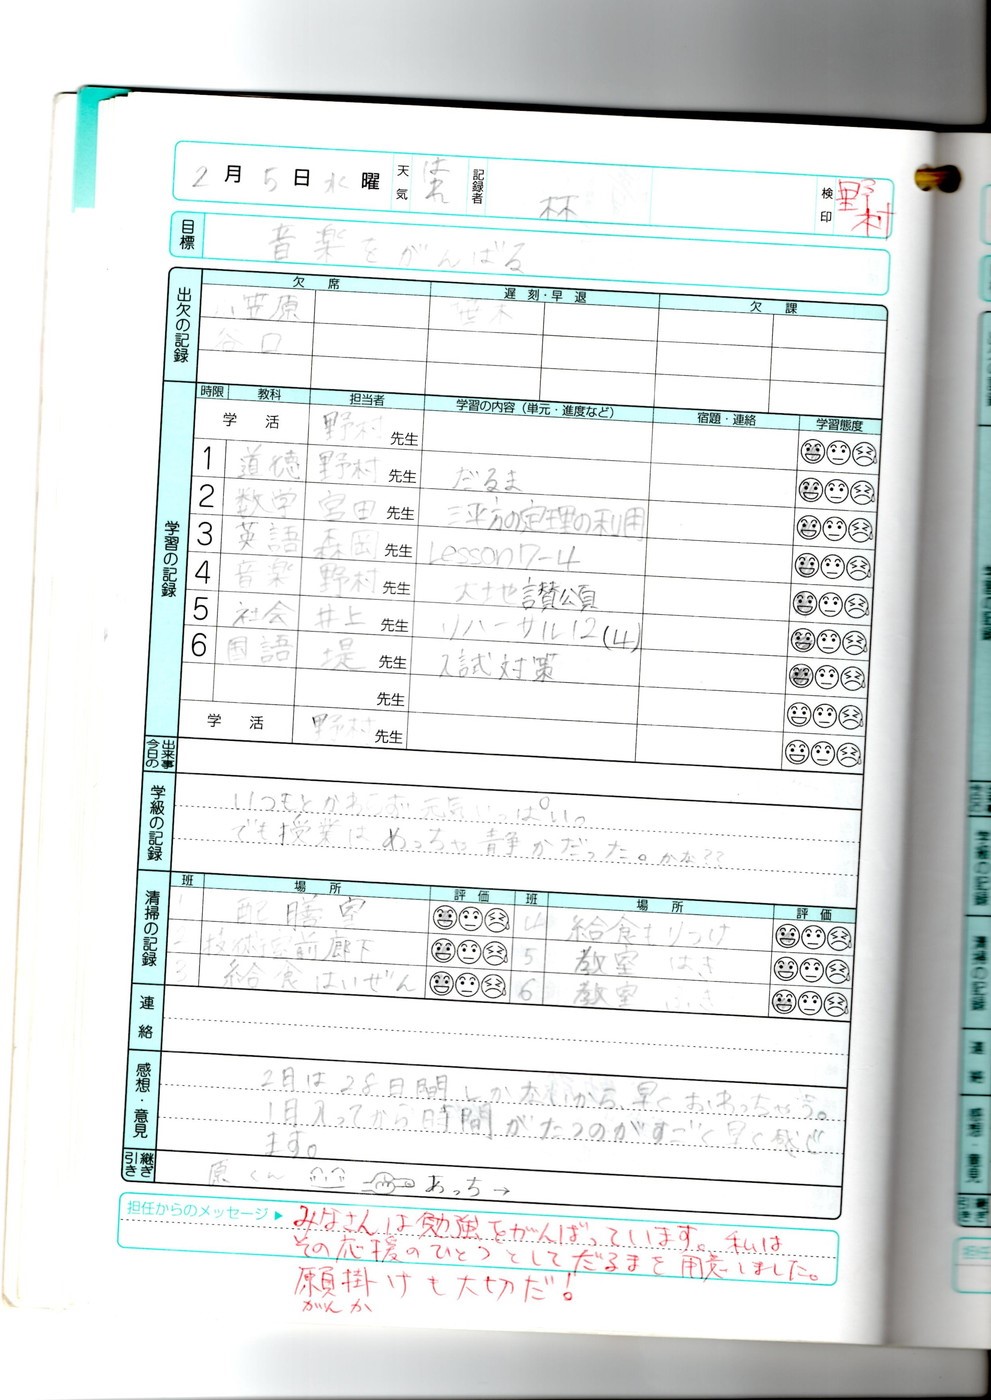 2月5日水曜 天気 はれ 記録者 林 検印 野村
目標 音楽をがんばる
出欠の記録
欠席 遅刻・早退 欠課
小笠原
谷口
学習の記録
時限 教科 担当者 学習の内容（単元・進度など） 宿題・連絡 学習態度
学活 野村先生
1 道徳 野村先生 だるま
2 数学 宮田先生 三平方の定理の利用
3 英語 森岡先生 Lesson7-4
4 音楽 野村先生 大地讃頌
5 社会 井上先生 リハーサル12(4)
6 国語 堤先生 入試対策
先生
学活 野村先生
今日の出来事
学級の記録
いつもとかわらず元気いっぱい。
でも授業はめっちゃ静かだった。かな??
清掃の記録
班 場所 評価 班 場所 評価
1 配膳室 4 給食もりつけ
2 技術室前廊下 5 教室 はき
3 給食はいぜん 6 教室 ふき
連絡
感想・意見
2月は28日間しかないから、早くおわっちゃう。
1月入ってから時間がたつのがすごく早く感じ
ます。
引き継ぎ 原くん あっち→
担任からのメッセージ▶ みなさんは勉強をがんばっています。私は
その応援のひとつとしてだるまを用意しました。
願掛けも大切だ!
がんか